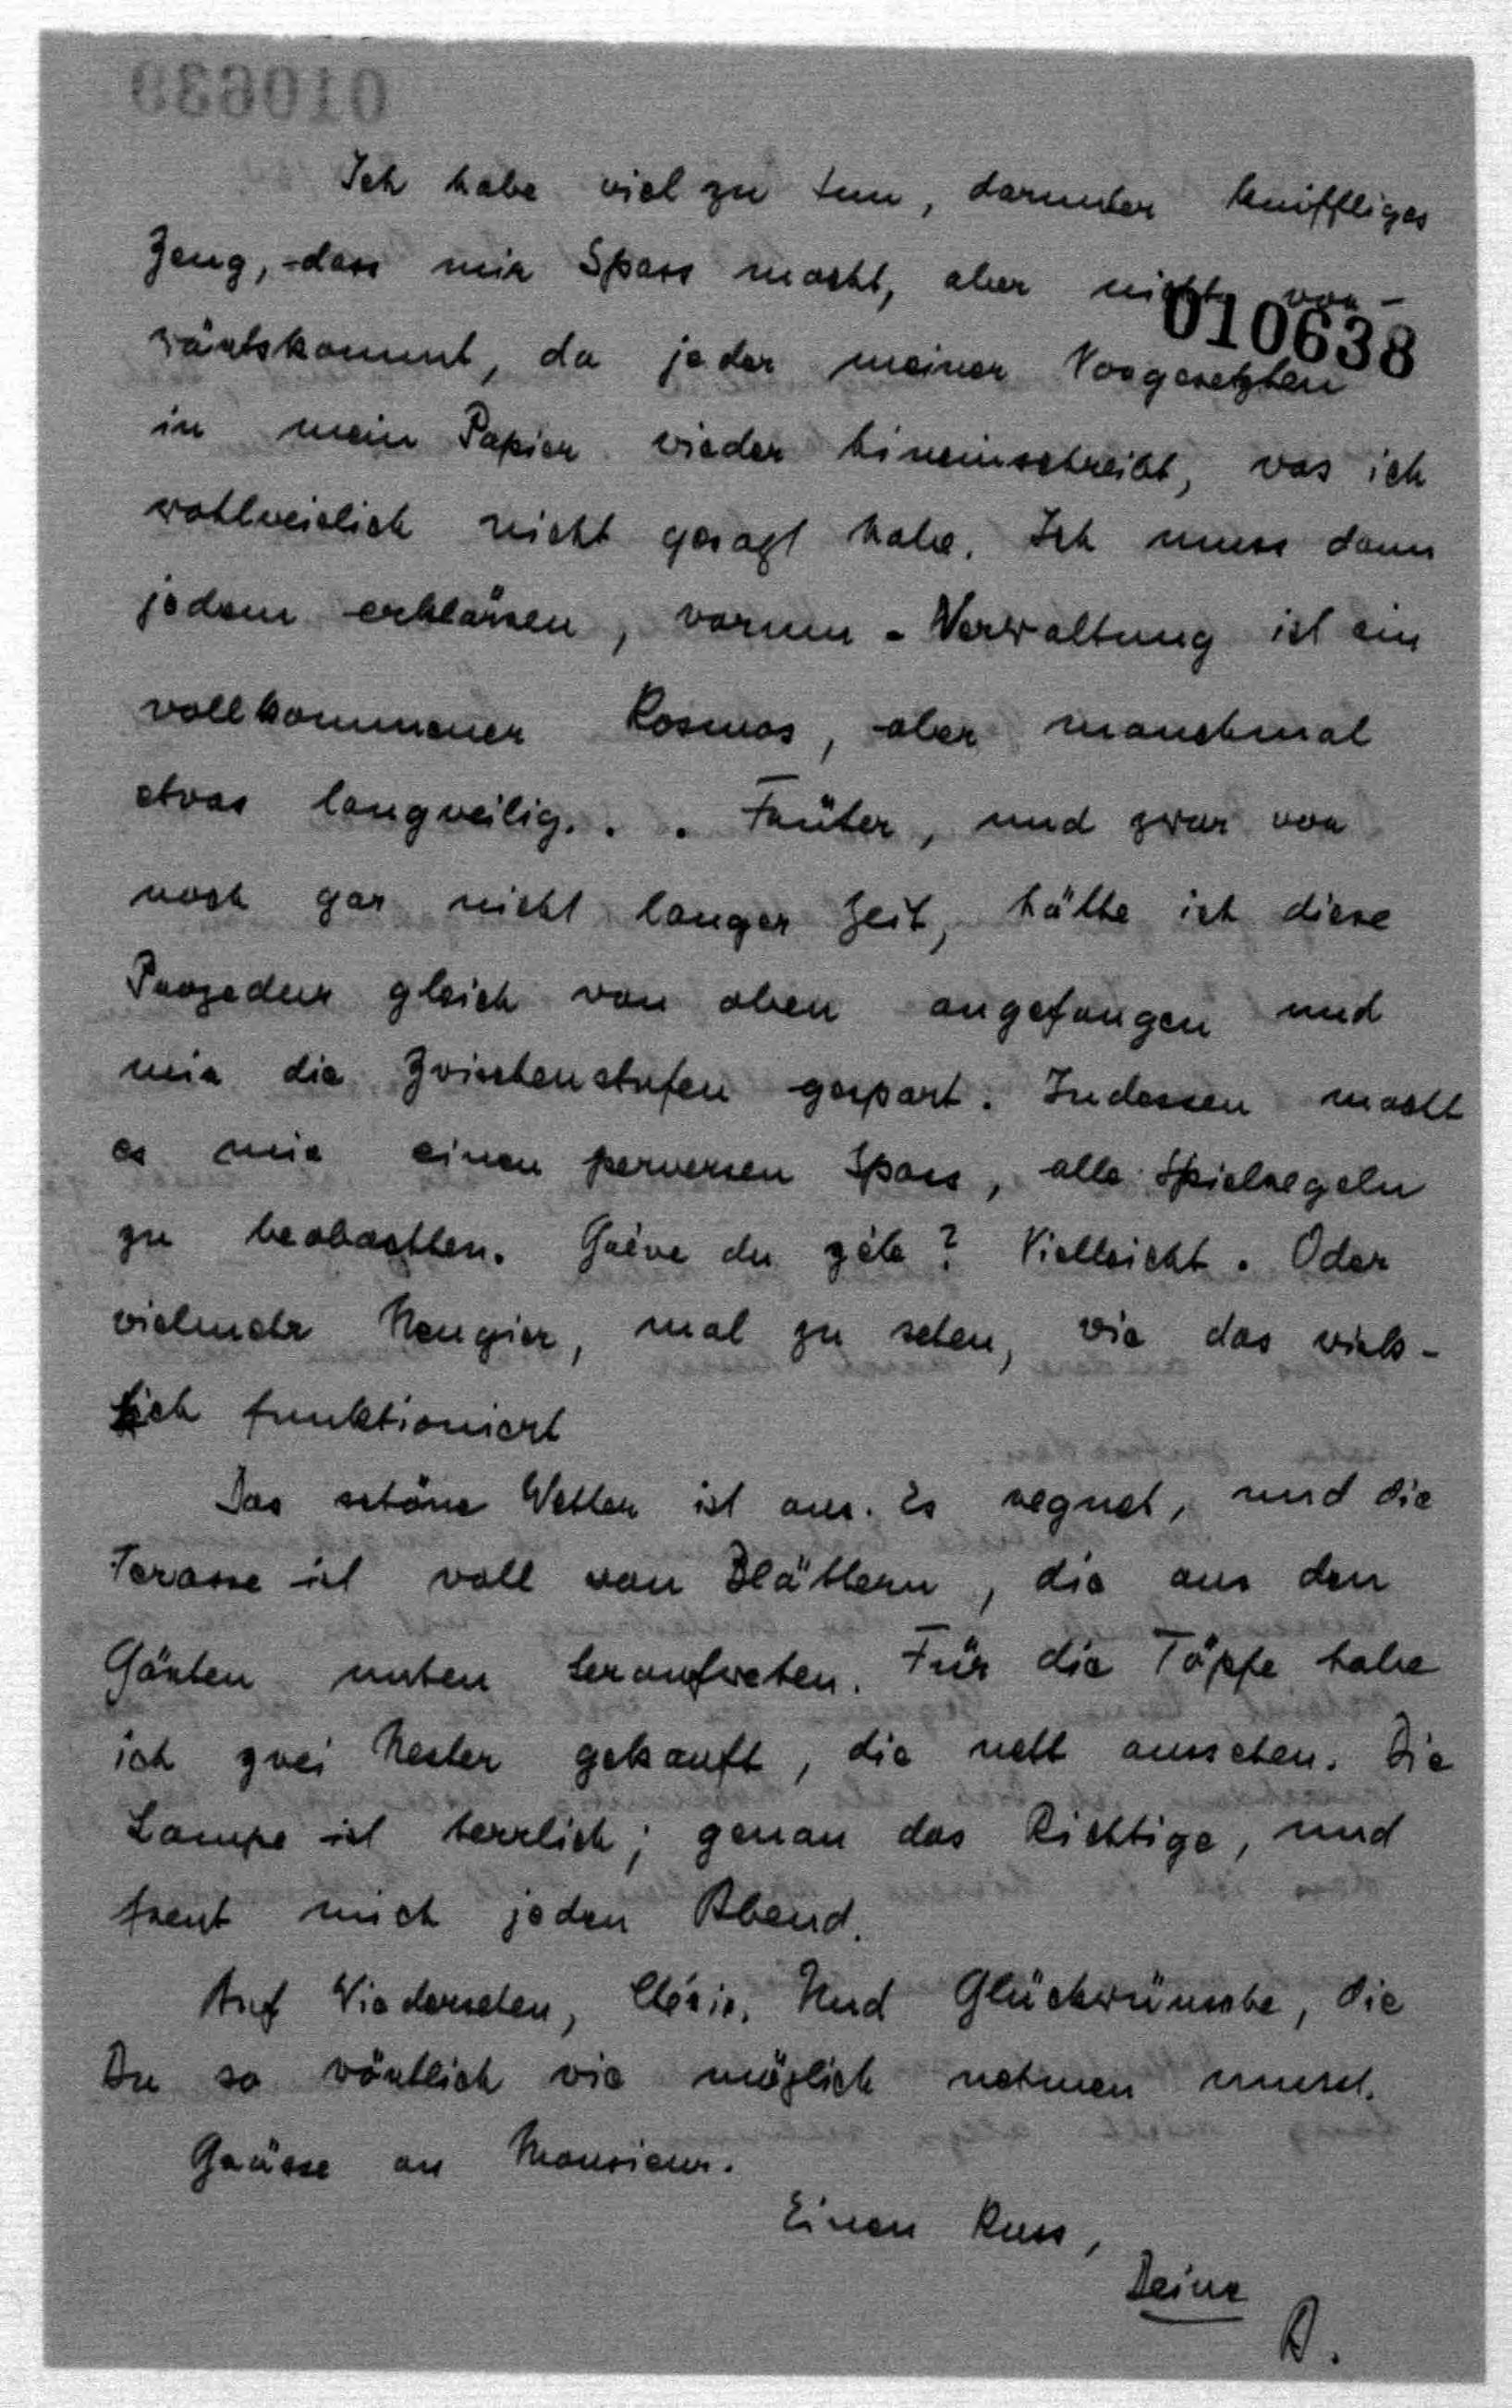 010639
Ich habe viel zu tun, darunter kniffliges
Zeug, dass mir Spass macht, aber nicht vor-
010638
wärtskommt, da jeder meiner Vorgesetzten
in mein Papier wieder hineinschreibt, was ich
wohlweislich nicht gesagt habe. Ich muss dann
jedem erklären, warum - Verwaltung ist ein
vollkommener Kosmos, aber manchmal
etwas langweilig. . . Früher, und zwar vor
noch gar nicht langer Zeit, hätte ich diese
Prozedur gleich von oben angefangen und
mir die Zwischenstufen gespart. Indessen macht
es mir einen perversen Spass, alle Spielregeln
zu beobachten. Grève du zèle? Vielleicht. Oder
vielmehr Neugier, mal zu sehen, wie das wirk-
lich funktioniert
Das schöne Wetter ist aus. Es regnet, und die
Terasse ist voll von Blättern, die aus den
Gärten unten heraufwehen. Für die Töpfe habe
ich zwei Nester gekauft, die nett aussehen. Die
Lampe ist herrlich; genau das Richtige, und
freut mich jeden Abend.
Auf Wiedersehen, Chérie. Und Glückwünsche, die
Du so wörtlich wie möglich nehmen musst.
Grüsse an Monsieur.
Einen Kuss,
Deine